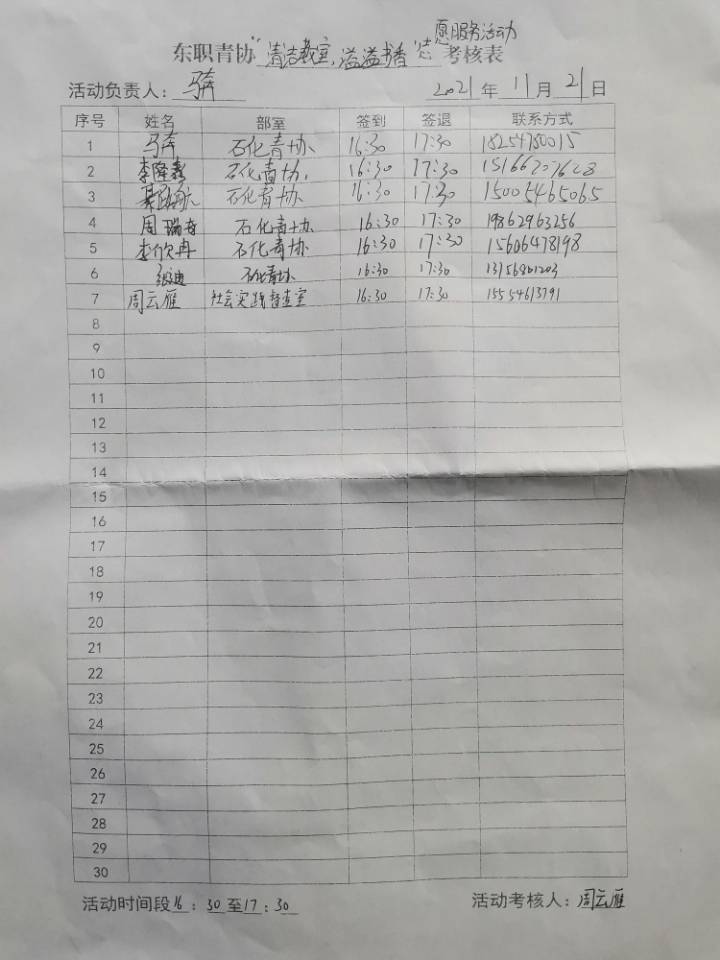 愿服务活动
东职青协“清洁教室,溢溢书香”志 考核表
活动负责人:马奔 2021年11月21日
序号 姓名 部室 签到 签退 联系方式
1 马奔 石化青协 16:30 17:30 18254780015
2 李隆鑫 石化青协 16:30 17:30
3 石化青协 16:30 17:30 15005465065
4 周瑞 石化青协 16:30 17:30 19862963256
5 李欣冉 石化青协 16:30 17:30 15606478198
6 张迪 石化青协 16:30 17:30
7 周云雁 社会实践督查室 16:30 17:30 15554613791
8
9
10
11
12
13
14
15
16
17
18
19
20
21
22
23
24
25
26
27
28
29
30
活动时间段16:30至17:30 活动考核人:周云雁